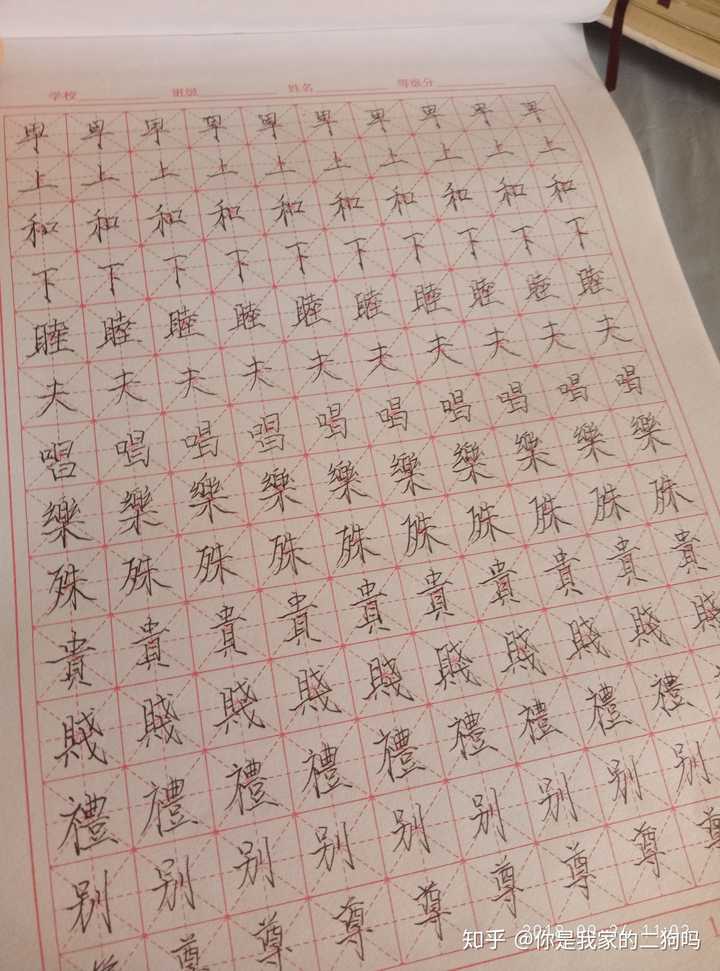 学校 班级 姓名 等级分
卑卑卑卑卑卑卑卑卑卑
上上上上上上上上上上
和和和和和和和和和和
下下下下下下下下下下
睦睦睦睦睦睦睦睦睦睦
夫夫夫夫夫夫夫夫夫夫
唱唱唱唱唱唱唱唱唱唱
樂樂樂樂樂樂樂樂樂樂
殊殊殊殊殊殊殊殊殊殊
貴貴貴貴貴貴貴貴貴貴
賤賤賤賤賤賤賤賤賤賤
禮禮禮禮禮禮禮禮禮
别别别别别别别别别
尊尊尊尊尊尊尊
知乎 @你是我家的二狗吗